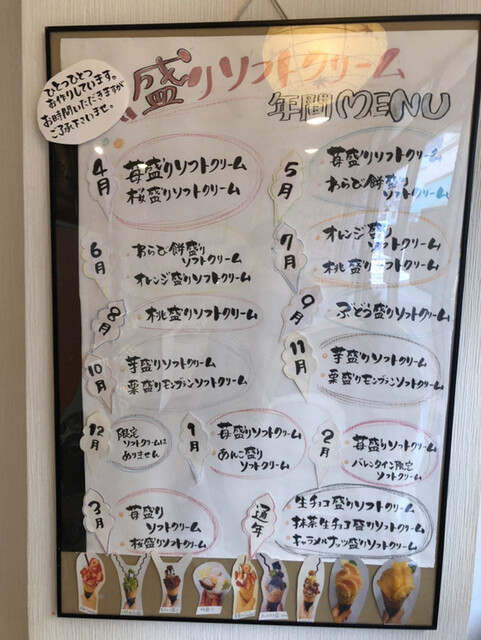 ひとつひとつ
お作りしています。
お時間いただきますが
ご了承下さいませ。
盛りソフトクリーム
年間MENU
4月
苺盛りソフトクリーム
桜盛りソフトクリーム
5月
苺盛りソフトクリーム
わらび餅盛り
ソフトクリーム
6月
わらび餅盛り
ソフトクリーム
オレンジ盛りソフトクリーム
7月
オレンジ盛り
ソフトクリーム
桃盛りソフトクリーム
8月
桃盛りソフトクリーム
9月
ぶどう盛りソフトクリーム
10月
芋盛りソフトクリーム
栗盛りモンブランソフトクリーム
11月
芋盛りソフトクリーム
栗盛りモンブランソフトクリーム
12月
限定
ソフトクリームは
ありません
1月
苺盛りソフトクリーム
あんこ盛り
ソフトクリーム
2月
苺盛りソフトクリーム
バレンタイン限定
ソフトクリーム
3月
苺盛り
ソフトクリーム
桜盛りソフトクリーム
通年
生チョコ盛りソフトクリーム
抹茶生チョコ盛りソフトクリーム
キャラメルナッツ盛りソフトクリーム